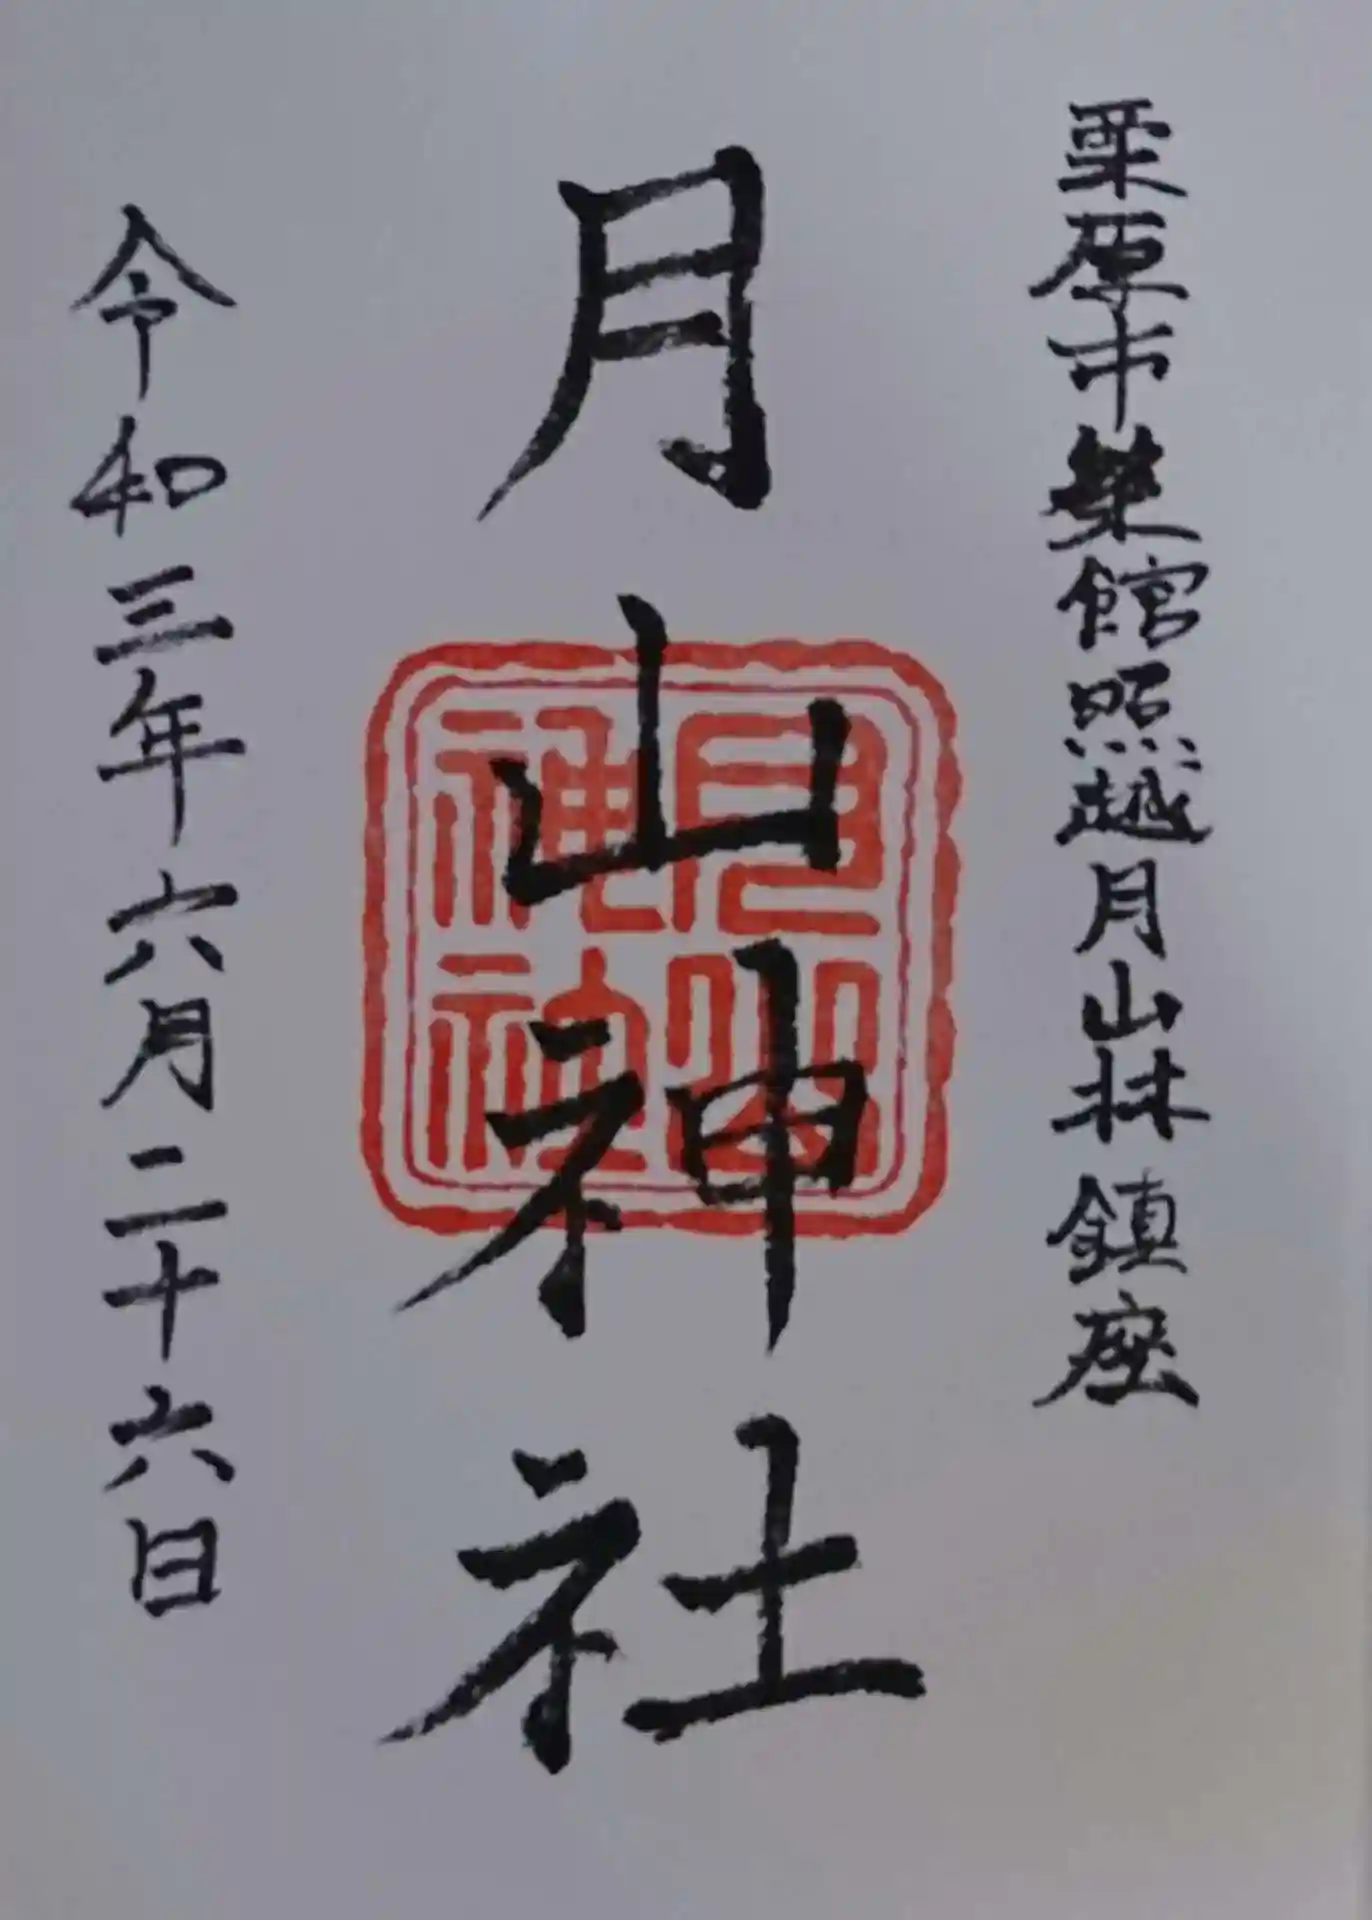 栗原市築館照越月山林鎮座
月山神社
月山
神社
令和三年六月二十六日